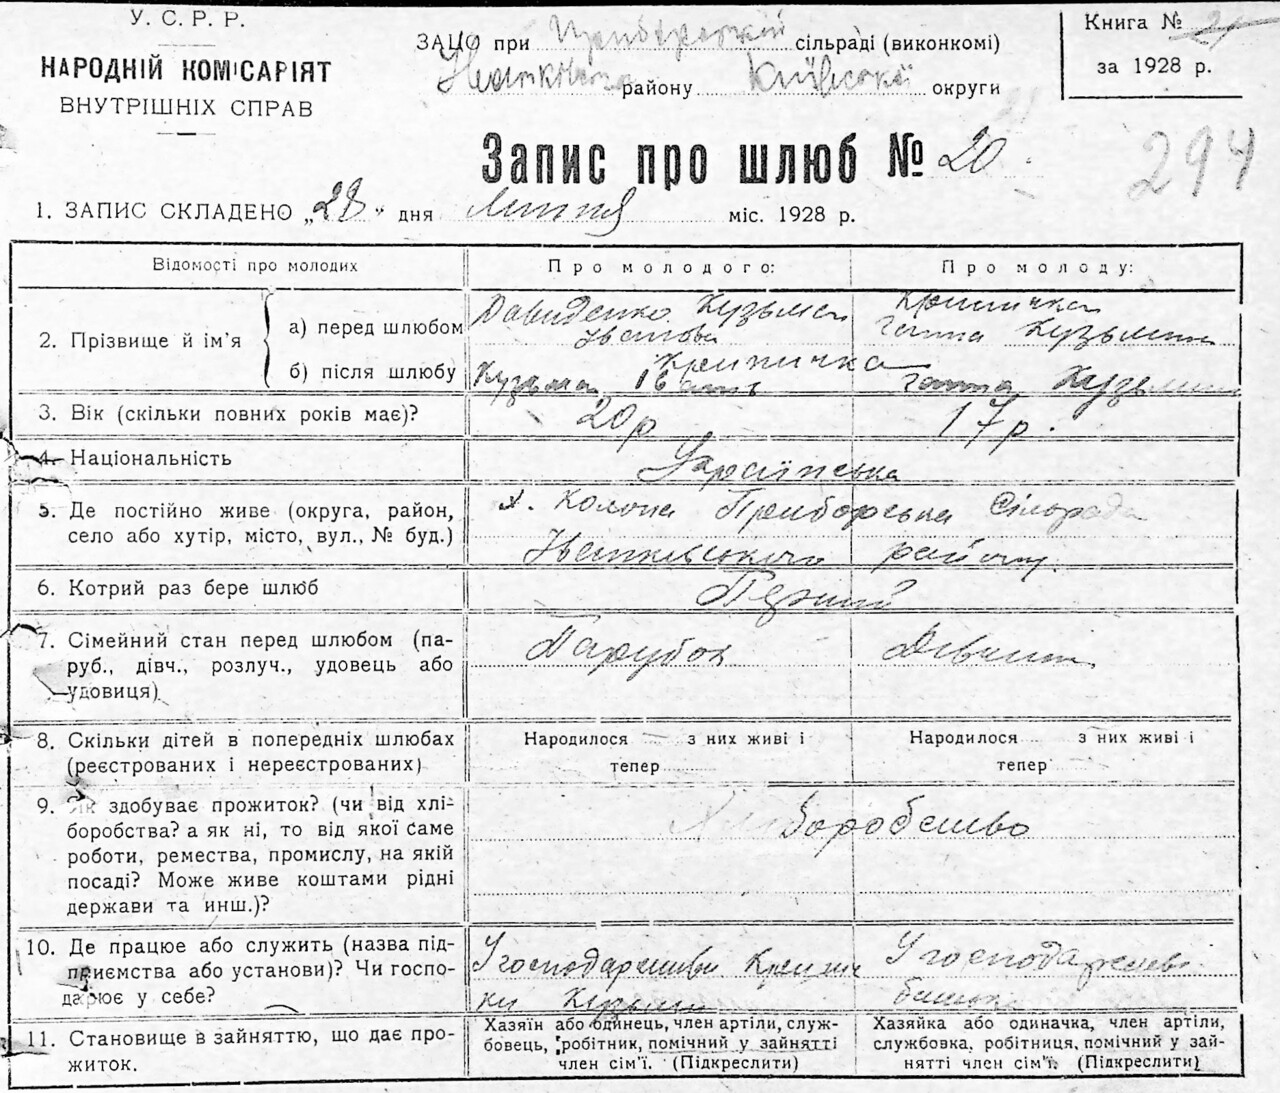 У. С. Р. Р.
НАРОДНІЙ КОМІСАРІЯТ
ВНУТРІШНІХ СПРАВ
ЗАЦС при сільраді (виконкомі)
району Київської округи
Книга № 21
за 1928 р.
294
Запис про шлюб № 20
1. ЗАПИС СКЛАДЕНО „28" дня липня міс. 1928 р.
Відомості про молодих
Про молодого:
Про молоду:
2. Прізвище й ім'я
а) перед шлюбом
Давиденко Кузьма
Іванов
Ганна Кузьмин
б) після шлюбу
Кузьма Іван
Ганна Кузьмин
3. Вік (скільки повних років має)?
20 р
17 р.
4. Національність
Українська
5. Де постійно живе (округа, район,
село або хутір, місто, вул., № буд.)
х. Приборська Сільрада
району
6. Котрий раз бере шлюб
Перший
7. Сімейний стан перед шлюбом (па-
руб., дівч., розлуч., удовець або
удовиця)
Парубок
Дівчина
8. Скільки дітей в попередніх шлюбах
(реєстрованих і нереєстрованих)
Народилося з них живі і
тепер
Народилося з них живі і
тепер
9. Як здобуває прожиток? (чи від хлі-
боробства? а як ні, то від якої саме
роботи, ремества, промислу, на якій
посаді? Може живе коштами рідні
держави та инш.)?
Хліборобство
10. Де працює або служить (назва під-
приємства або установи)? Чи госпо-
дарює у себе?
У господарстві
Кузьми
У господарстві
батька
11. Становище в зайняттю, що дає про-
житок.
Хазяїн або одинець, член артіли, служ-
бовець, робітник, помічний у зайнятті
член сім'ї. (Підкреслити)
Хазяйка або одиначка, член артіли,
службовка, робітниця, помічний у зай-
нятті член сім'ї. (Підкреслити)